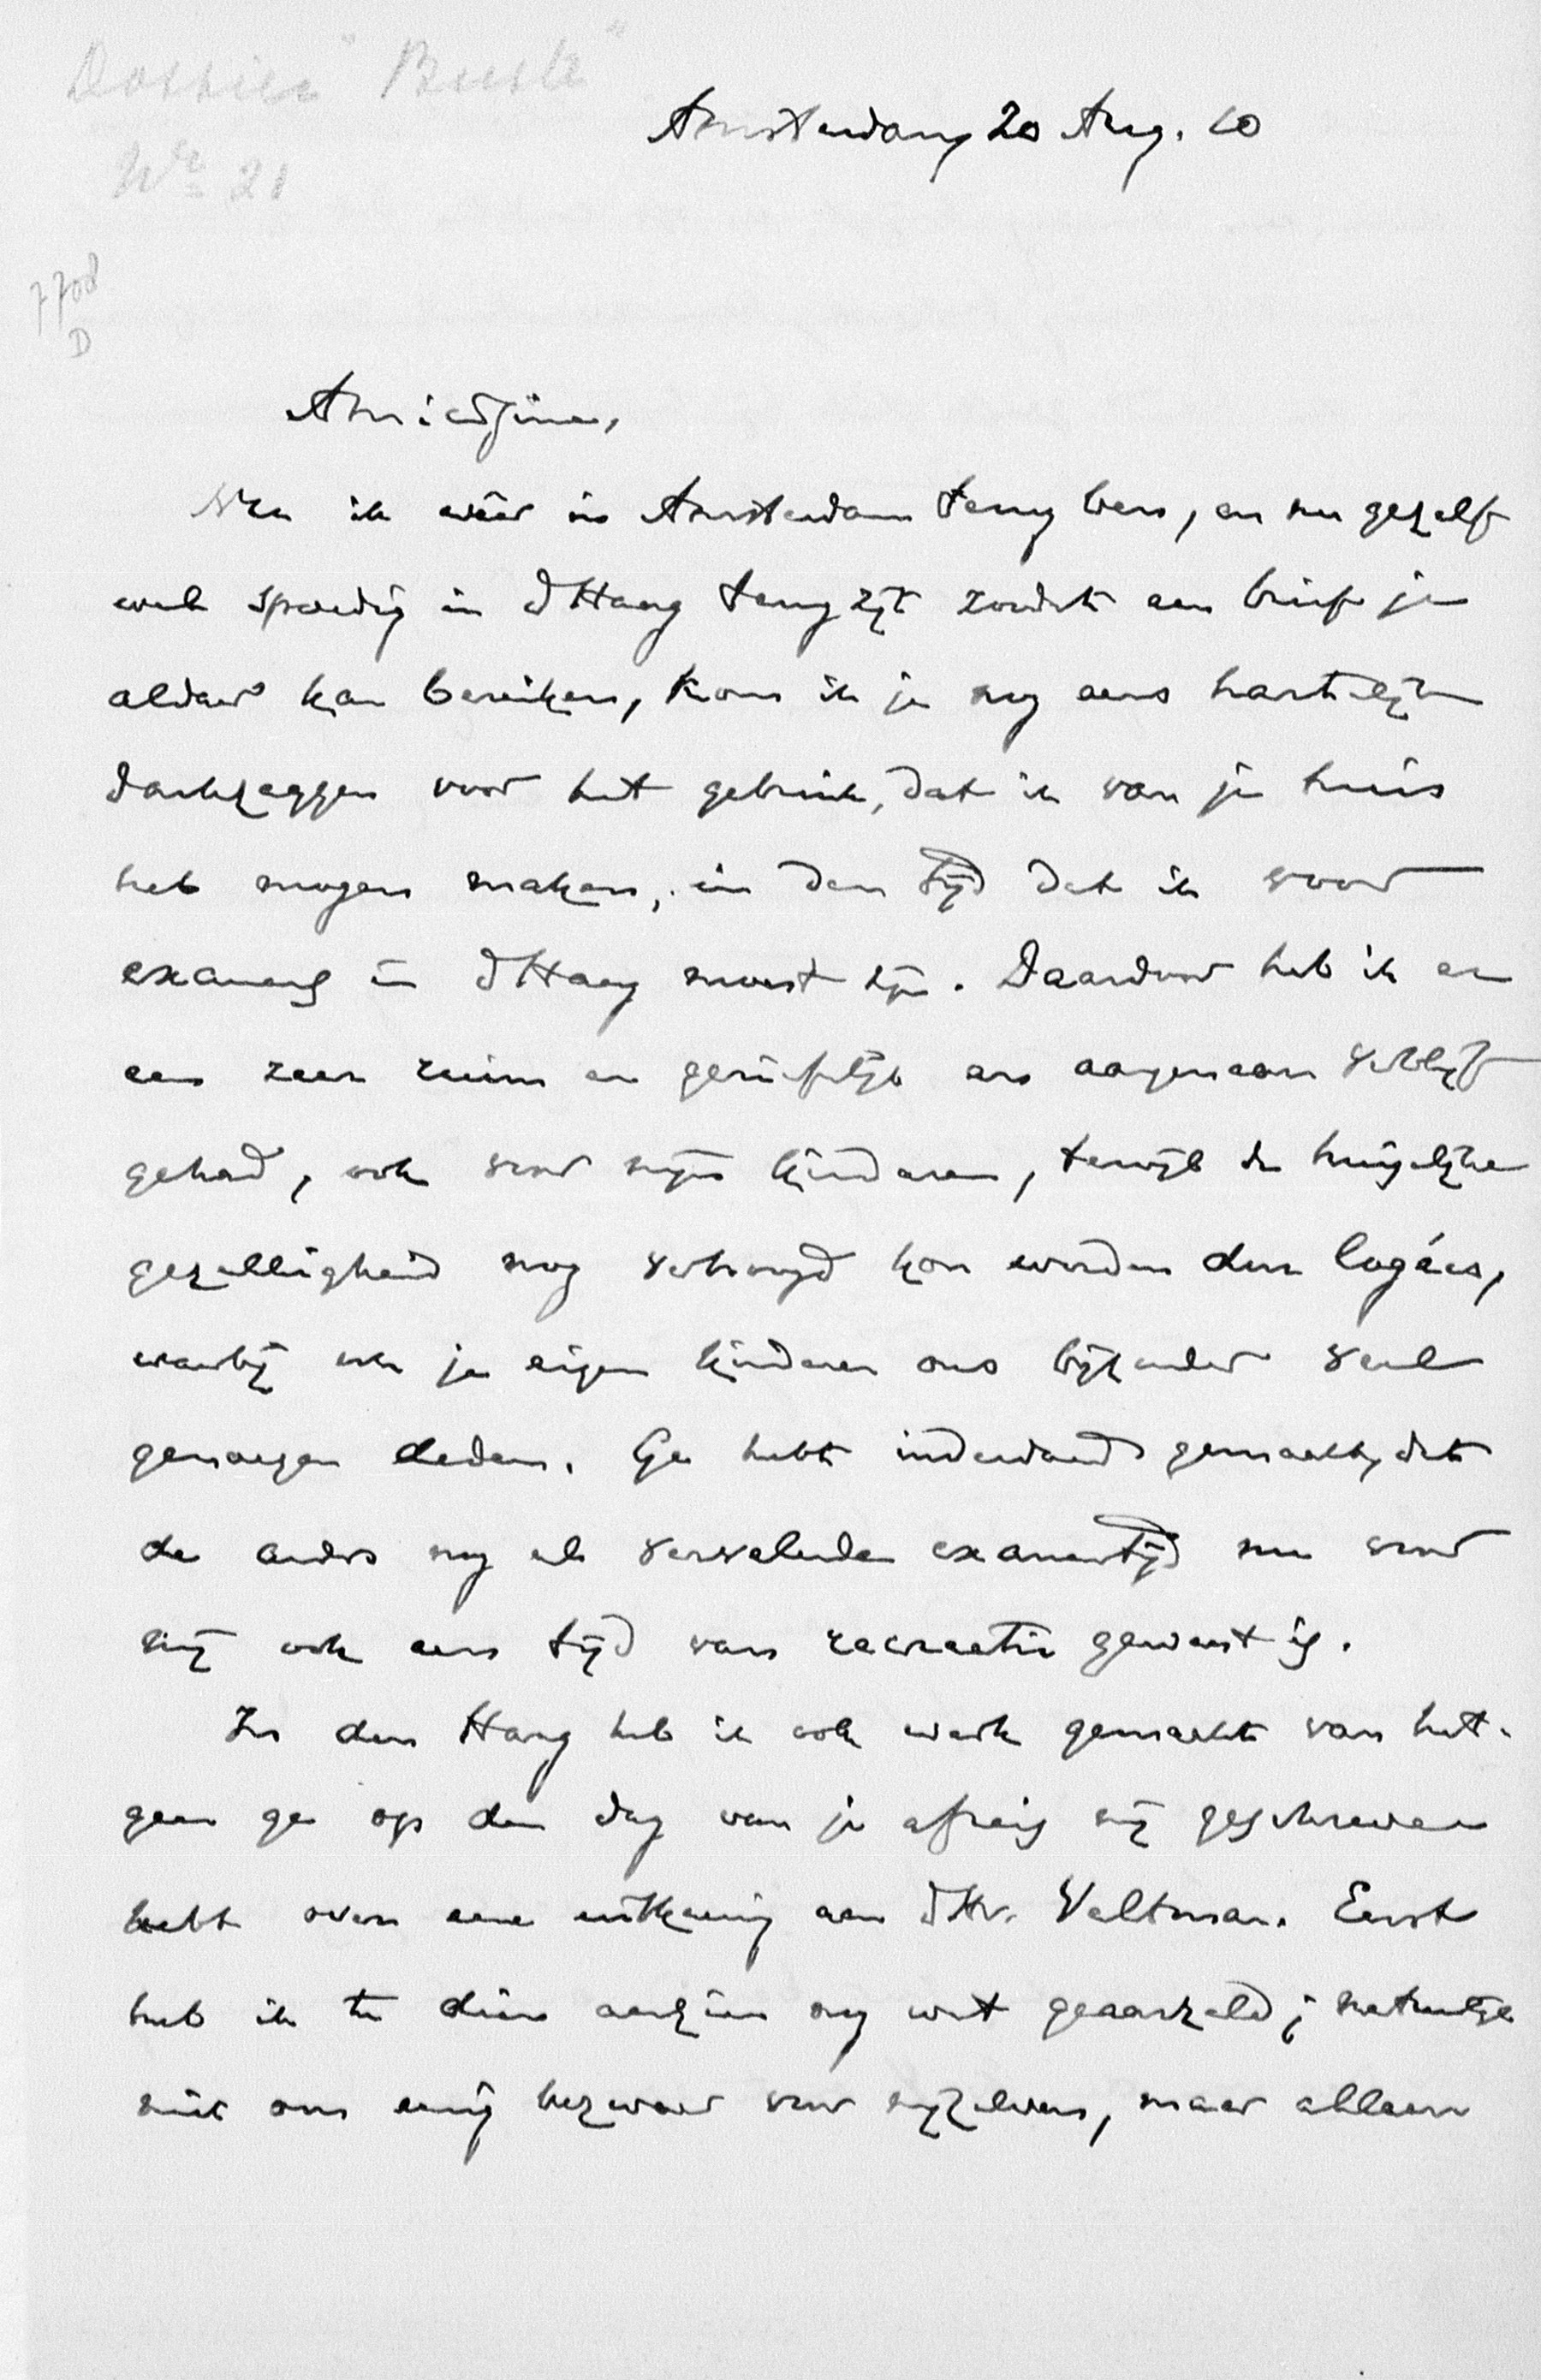 Dossier "Beuk"
No 21
Amsterdam 20 Aug. 10
7708
D
Amicissime,
Nu ik weêr in Amsterdam terug ben, en nu gezelf
wel spoedig in d Haag terug zijt zoodat een brief je
aldaar kan bereiken, kom ik je nog eens hartelijk
dankzeggen voor het gebruik, dat ik van je huis
heb mogen maken, in den tijd dat ik voor
examens in d Haag moest zijn. Daardoor heb ik er
een zeer ruim en geriefelijk en aangenaam verblijf
gehad, ook voor mijn kinderen, terwijl de huiselijke
gezelligheid nog verhoogd kon worden door logées,
waarbij ook je eigen kinderen ons bijzonder veel
genoegen deden. Ge hebt inderdaad gemaakt, dat
de anders nog al vervelende examentijd nu voor
mij ook een tijd van recreatie geweest is.
In den Haag heb ik ook werk gemaakt van het-
geen ge op den dag van je afreis mij geschreven
hebt over eene uitkeering aan d Hr. Veltman. Eerst
heb ik te dien aanzien nog wat geaarzeld; natuurlijk
niet om eenig bezwaar voor mijzelven, maar alleen